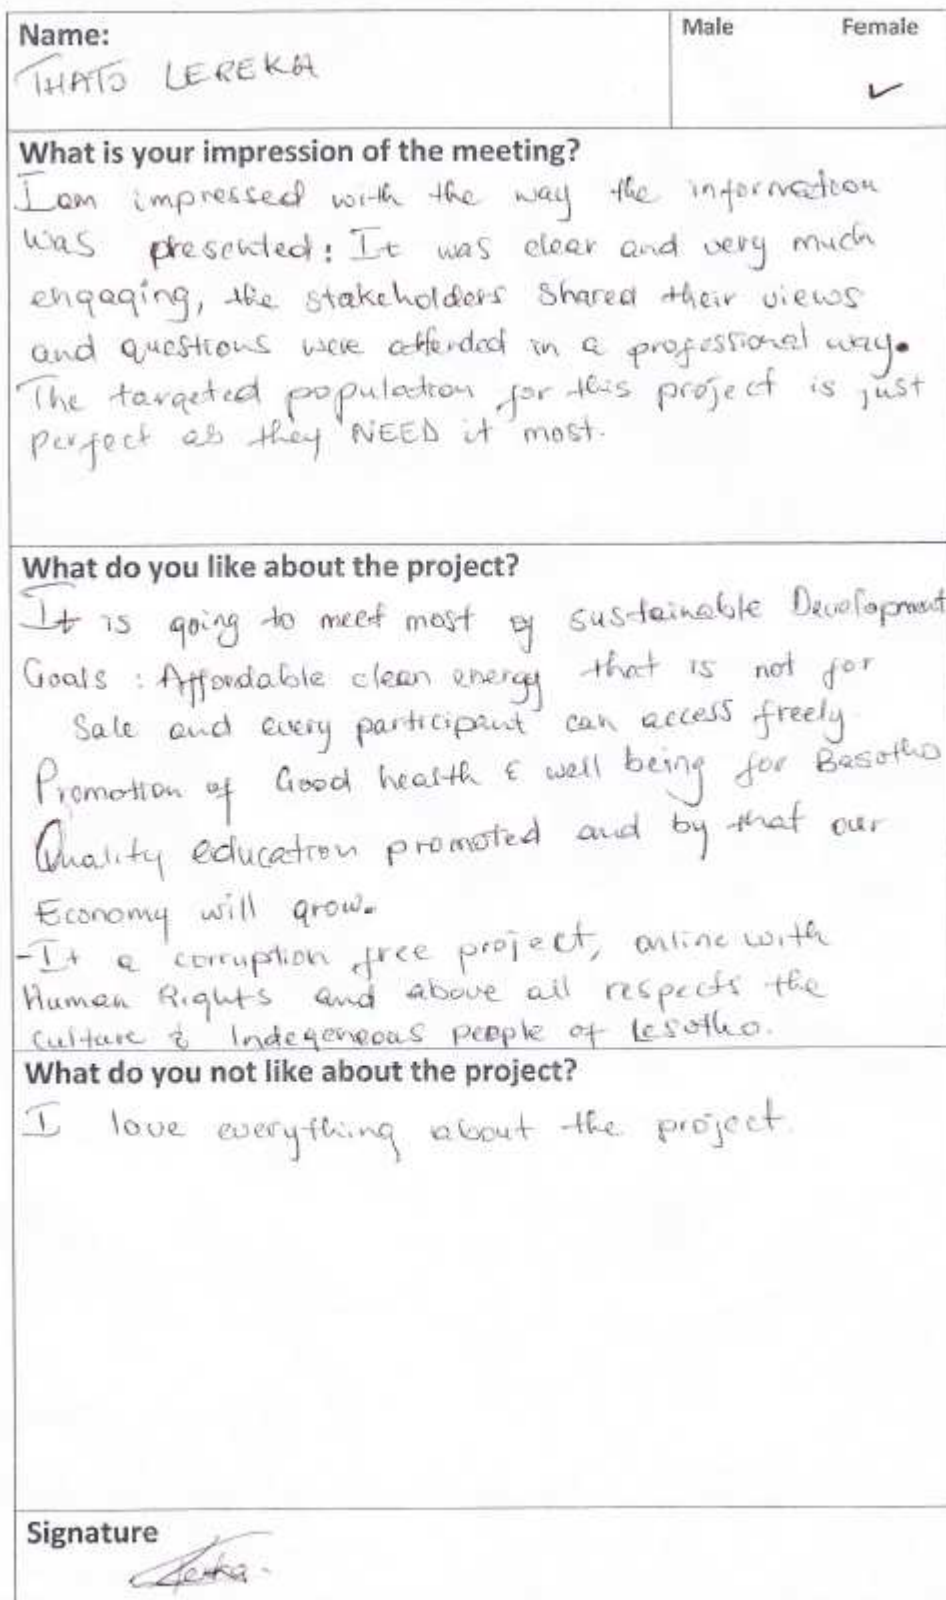 Name:
Male Female
THATO LEREKA
✓
What is your impression of the meeting?
I am impressed with the way the information
was presented: It was clear and very much
engaging, the stakeholders shared their views
and questions were attended in a professional way.
The targeted population for this project is just
perfect as they NEED it most.
What do you like about the project?
It is going to meet most of sustainable Development
Goals : Affordable clean energy that is not for
Sale and every participant can access freely
Promotion of Good health & well being for Basotho
Quality education promoted and by that our
Economy will grow.
-It a corruption free project, online with
Human Rights and above all respects the
culture & Indegeneous people of Lesotho.
What do you not like about the project?
I love everything about the project.
Signature